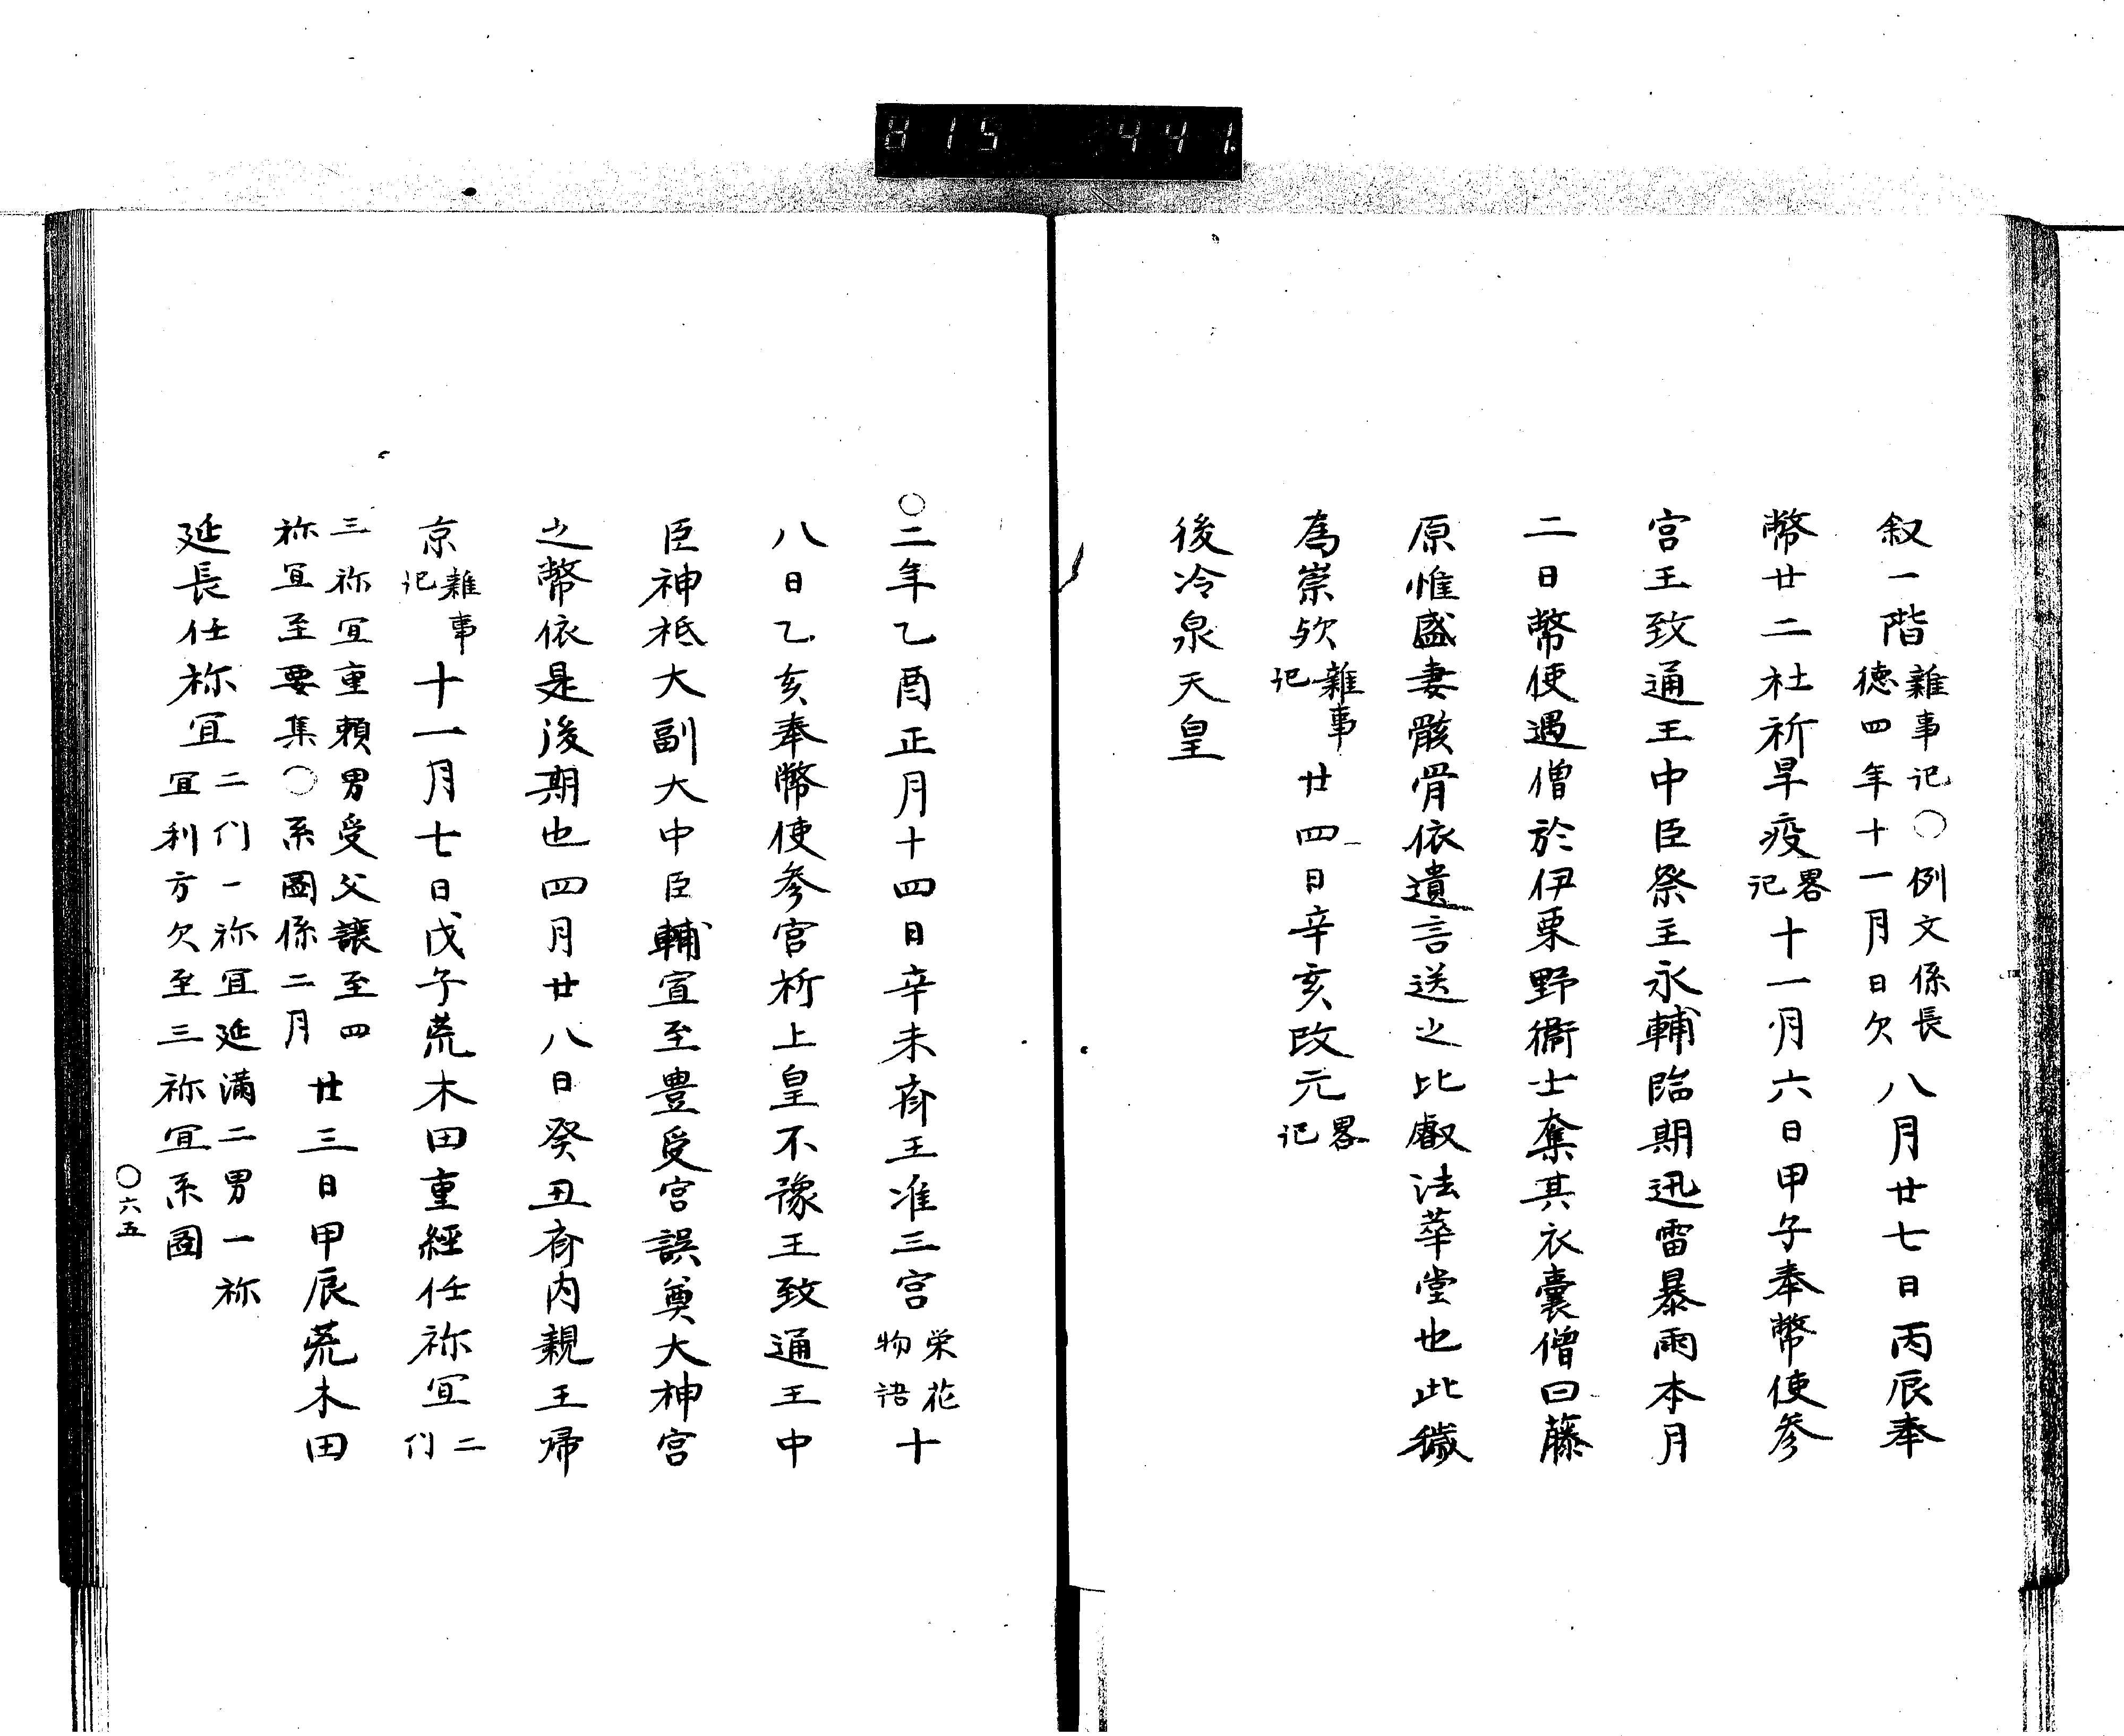 815 441.
叙一階雜事记〇例文係長德四年十一月日欠八月廿七日丙辰奉
幣廿二社祈旱疫畧记十一月六日甲子奉幣使参
宮王致通王中臣祭主永輔臨期迅雷暴雨本月
二日幣使遇僧於伊栗野衛士奪其衣囊僧曰藤
原惟盛妻骸骨依遺言送之比叡法華堂也此穢
為崇欤雜事记廿四日辛亥改元畧记
後冷泉天皇
〇二年乙酉正月十四日辛未斉王准三宮栄花物语十
八日乙亥奉幣使参宮祈上皇不豫王致通王中
臣神祇大副大中臣輔宣至豊受宮誤奠大神宮
之幣依是後期也四月廿八日癸丑斉内親王帰
京雜事记十一月七日戊子荒木田重經任祢冝二们
三祢冝重頼男受父讓至四祢冝至要集〇系圖係二月廿三日甲辰荒木田
延長任祢冝二们一祢冝延満二男一祢冝利方欠至三祢冝系圖
〇六五